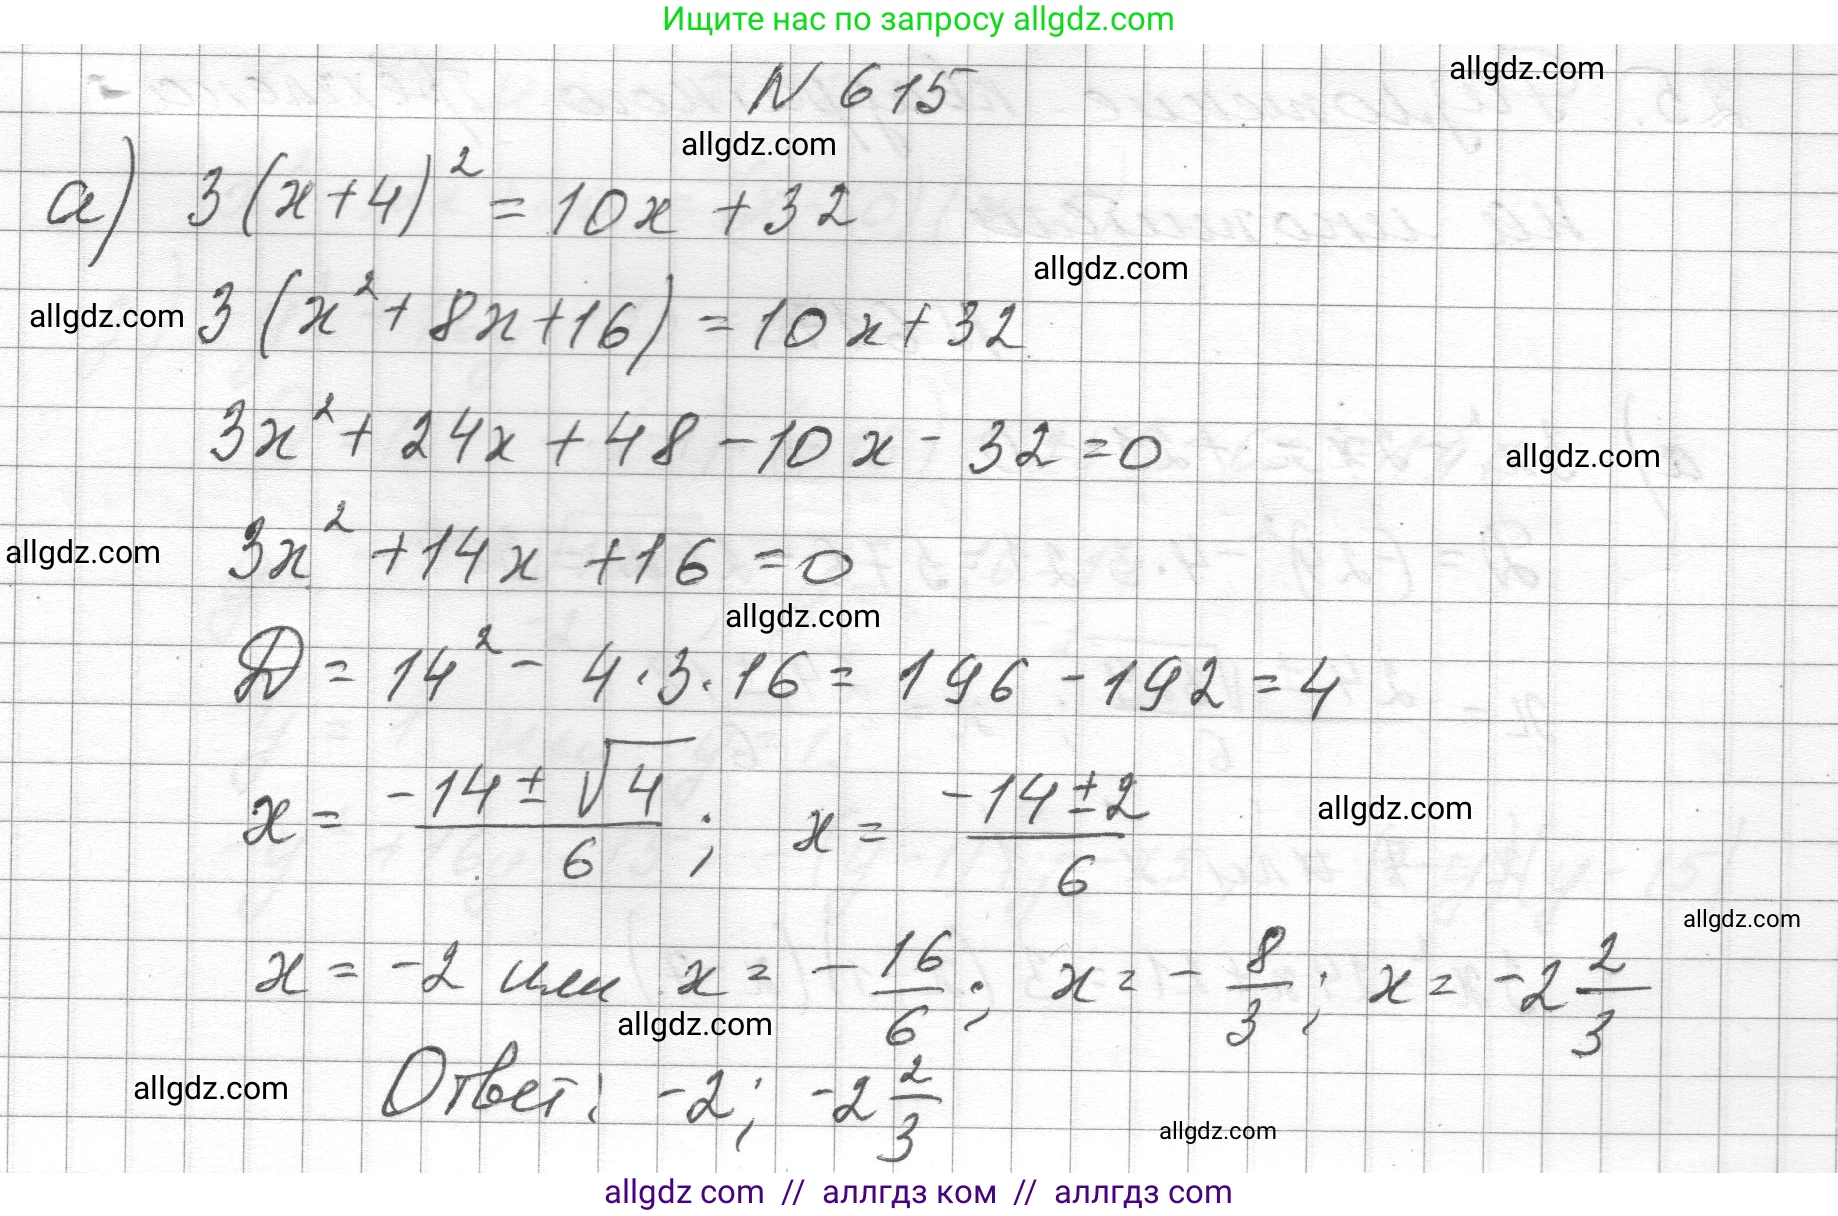 Ищите нас по запросу allgdz.com
allgdz.com
N 615
allgdz.com
а) 3(x+4)² = 10x + 32
allgdz.com
allgdz.com
3(x² + 8x + 16) = 10x + 32
3x² + 24x + 48 - 10x - 32 = 0
allgdz.com
allgdz.com
3x² + 14x + 16 = 0
allgdz.com
D = 14² - 4·3·16 = 196 - 192 = 4
x = (-14 ± √4)/6 ; x = (-14 ± 2)/6
allgdz.com
allgdz.com
x = -2 или x = -16/6 ; x = -8/3 ; x = -2 2/3
allgdz.com
allgdz.com
Ответ: -2; -2 2/3
allgdz.com
allgdz com // аллгдз ком // аллгдз com